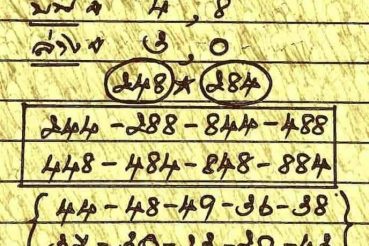 บน * 4, 8
ล่าง * 3, 0
248 * 284
244 - 288 - 844 - 488
448 - 484 - 848 - 884
44 - 48 - 49 - 36 - 38